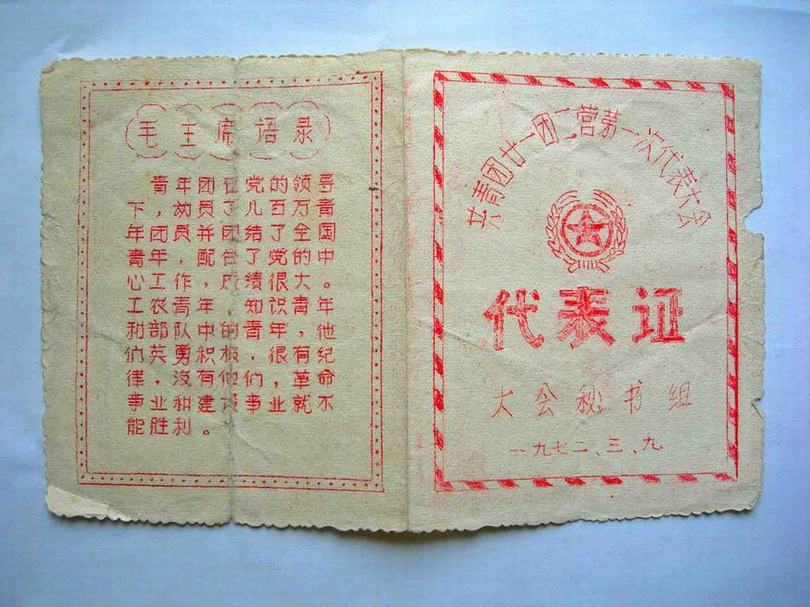 毛主席语录
青年团在党的领导
下，动员了几百万青
年团员并团结了全国
青年，配合了党的中
心工作，成绩很大。
工农青年，知识青年
和部队中的青年，他
们英勇积极，很有纪
律，没有他们，革命
事业和建设事业就不
能胜利。
共青团廿一团二营第一次代表大会
代表证
大会秘书组
一九七二、三、九